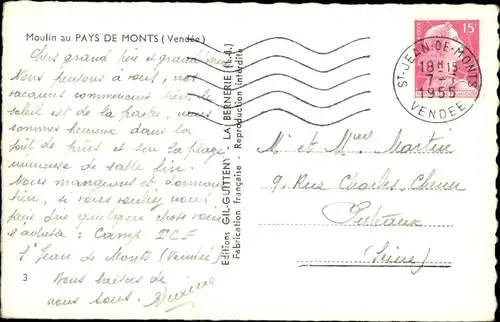 Moulin au PAYS DE MONTS (Vendée)
Chers grand père et grand mère
Nous pensons à vous, nos
vacances commencent bien le
soleil est de la partie, nous
sommes heureux dans la
forêt de pins et sur la plage
de sable fin.
Nous mangeons et dormons
bien, si vous voulez nous
faire dire quelque chose voici
l'adresse : Camp TCF
St Jean de Monts (Vendée)
Bons baisers de
nous tous.
3
Editions GIL-GUITTENY - LA BERNERIE (L.-I.)
Fabrication française - Reproduction interdite
15F
ST-JEAN-DE-MONTS
18H15
7-
1955
VENDEE
M. et Mme Martin
9. Rue Charles Chenu
Puteaux
(Seine)